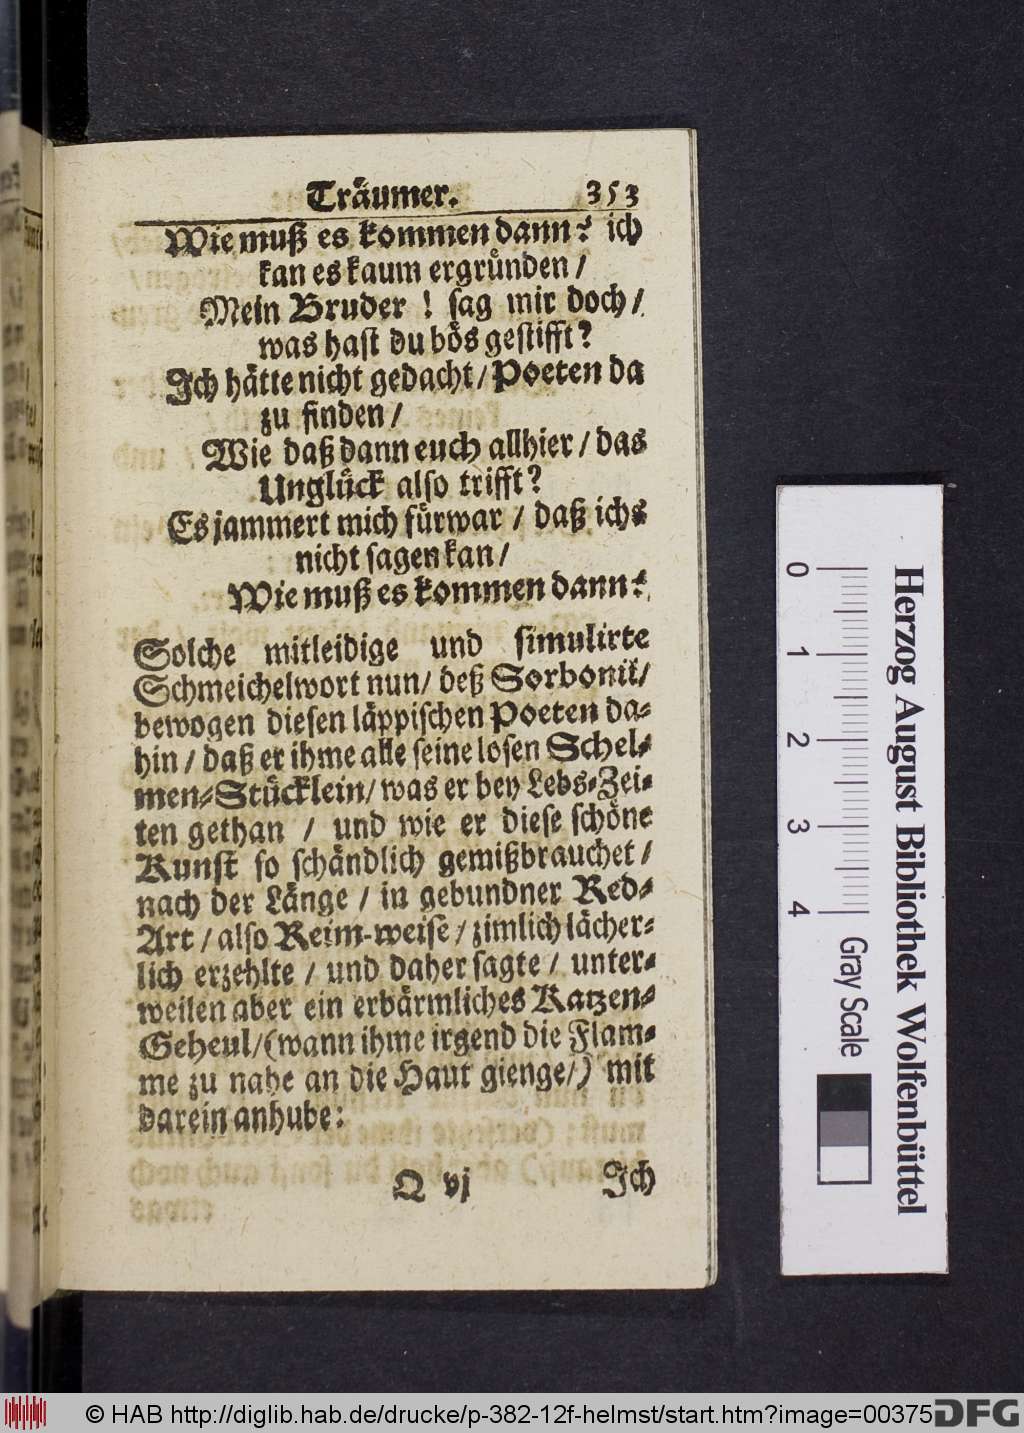 Träumer. 353
Wie muß es kommen dann? ich
kan es kaum ergründen /
Mein Bruder ! sag mir doch /
was hast du bös gestifft?
Ich hätte nicht gedacht / Poeten da
zu finden /
Wie daß dann euch allhier / das
Unglück also trifft?
Es jammert mich fürwar / daß ichs
nicht sagen kan /
Wie muß es kommen dann?
Solche mitleidige und simulirte
Schmeichelwort nun / deß Sorbonii /
bewogen diesen läppischen Poeten da-
hin / daß er ihme alle seine losen Schel-
men-Stücklein / was er bey Lebs-Zei-
ten gethan / und wie er diese schöne
Kunst so schändlich gemißbrauchet /
nach der Länge / in gebundner Red-
Art / also Reim-weise / zimlich lächer-
lich erzehlte / und daher sagte / unter-
weilen aber ein erbärmliches Katzen-
Geheul / (wann ihme irgend die Flam-
me zu nahe an die Haut gienge /) mit
darein anhube:
Q vj Ich
0 1 2 3 4
Gray Scale
Herzog August Bibliothek Wolfenbüttel
© HAB http://diglib.hab.de/drucke/p-382-12f-helmst/start.htm?image=00375
DFG